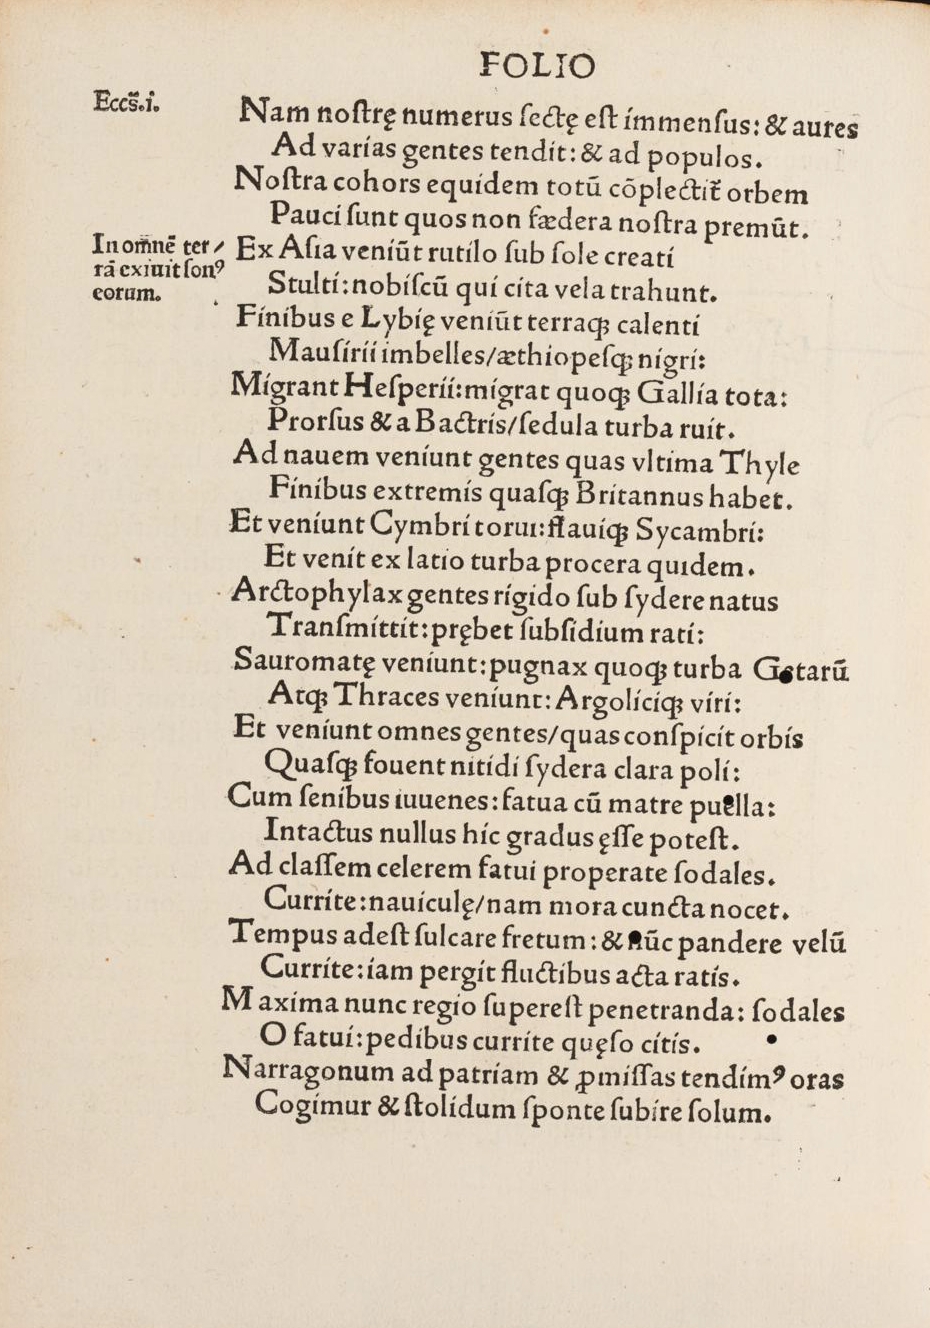 FOLIO
Eccs̃.i.
Nam noſtrę numerus ſectę eſt immenſus: & aures
Ad varias gentes tendit: & ad populos.
Noſtra cohors equidem totū cōplectit᷑ orbem
Pauci ſunt quos non fædera noſtra premūt.
In om̄nē ter⸗
rā exiuit ſonꝰ
eorum.
Ex Aſia veniūt rutilo ſub ſole creati
Stulti: nobiſcū qui cita vela trahunt.
Finibus e Lybię veniūt terraqꝫ calenti
Mauſirii imbelles/æthiopeſqꝫ nigri:
Migrant Heſperii: migrat quoqꝫ Gallia tota:
Prorſus & a Bactris/ſedula turba ruit.
Ad nauem veniunt gentes quas vltima Thyle
Finibus extremis quaſqꝫ Britannus habet.
Et veniunt Cymbri torui: flauiqꝫ Sycambri:
Et venit ex latio turba procera quidem.
Arctophylax gentes rigido ſub ſydere natus
Tranſmittit: prębet ſubſidium rati:
Sauromatę veniunt: pugnax quoqꝫ turba Getarū
Atqꝫ Thraces veniunt: Argoliciqꝫ viri:
Et veniunt omnes gentes/quas conſpicit orbis
Quaſqꝫ fouent nitidi ſydera clara poli:
Cum ſenibus iuuenes: fatua cū matre puella:
Intactus nullus hic gradus ęſſe poteſt.
Ad claſſem celerem fatui properate ſodales.
Currite: nauiculę/nam mora cuncta nocet.
Tempus adeſt ſulcare fretum: & nūc pandere velū
Currite: iam pergit fluctibus acta ratis.
Maxima nunc regio ſupereſt penetranda: ſodales
O fatui: pedibus currite quęſo citis.
Narragonum ad patriam & ꝓmiſſas tendimꝰ oras
Cogimur & ſtolidum ſponte ſubire ſolum.